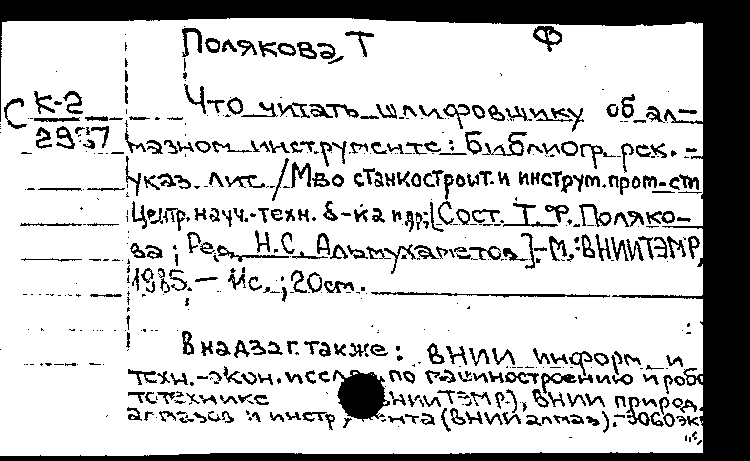 Полякова, Т Ф
С К-2
2937
Что читать шлифовщику об ал-
мазном инструменте: Библиогр. рек. -
указ. лит. / М-во станкостроит. и инструм. пром-сти
Центр. науч.-техн. б-ка и др.; [Сост. Т. Ф. Поляко-
ва; Ред. Н.С. Альмухаметов].-М.: ВНИИТЭМР,
1985.- 11с.; 20см.
В надзаг. также: ВНИИ информ. и
техн.-экон. исслед. по машиностроению и робо
тотехнике ВНИИТЭМР), ВНИИ природ.
алмазов и инструмента (ВНИИалмаз).-3060экз